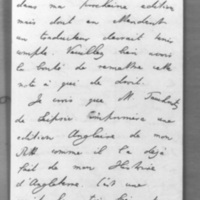 dans ma prochaine édition
mais dont en attendant
un traducteur devrait tenir
compte. Veuillez bien avoir
la bonté de remettre cette
note à qui de droit.
Je vois que M.
de imprimera une
édition Anglaise de mon
comme il l'a déjà
fait de mon Histoire
d'Angleterre. C'est une